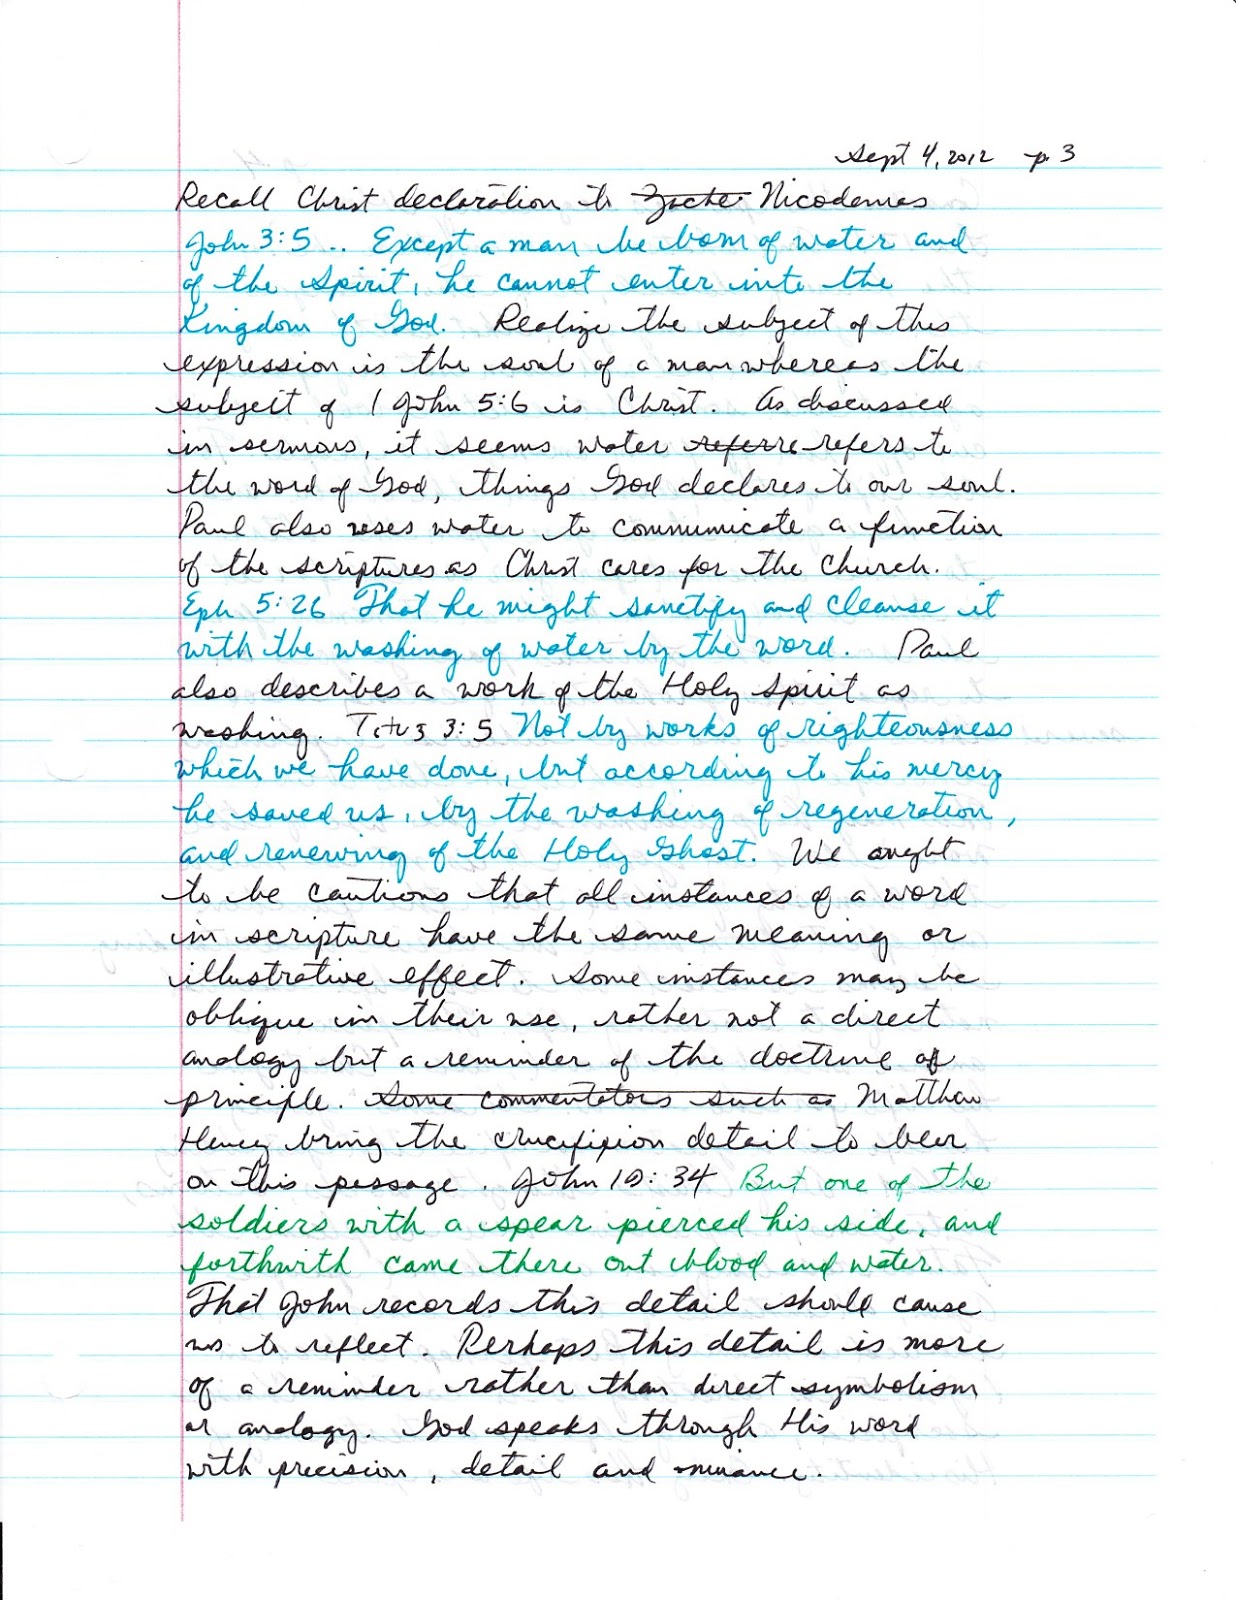 Sept 4, 2012 p. 3
Recall Christ declaration to Zache Nicodemas
John 3:5 .. Except a man be born of water and
of the Spirit, he cannot enter into the
Kingdom of God. Realize the subject of this
expression is the soul of a man whereas the
subject of 1 John 5:6 is Christ. As discussed
in sermons, it seems water referre refers to
the word of God, things God declares to our soul.
Paul also uses water to communicate a function
of the scriptures as Christ cares for the church.
Eph 5:26 That he might sanctify and cleanse it
with the washing of water by the word. Paul
also describes a work of the Holy Spirit as
washing. Titus 3:5 Not by works of righteousness
which we have done, but according to his mercy
he saved us, by the washing of regeneration,
and renewing of the Holy Ghost. We ought
to be cautious that all instances of a word
in scripture have the same meaning or
illustrative effect. Some instances may be
oblique in their use, rather not a direct
analogy but a reminder of the doctrine of
principle. Some commentators such as Matthew
Henry bring the crucifixion detail to bear
on this passage. John 19:34 But one of the
soldiers with a spear pierced his side, and
forthwith came there out blood and water.
That John records this detail should cause
us to reflect. Perhaps this detail is more
of a reminder rather than direct symbolism
or analogy. God speaks through His word
with precision, detail and nuiance.